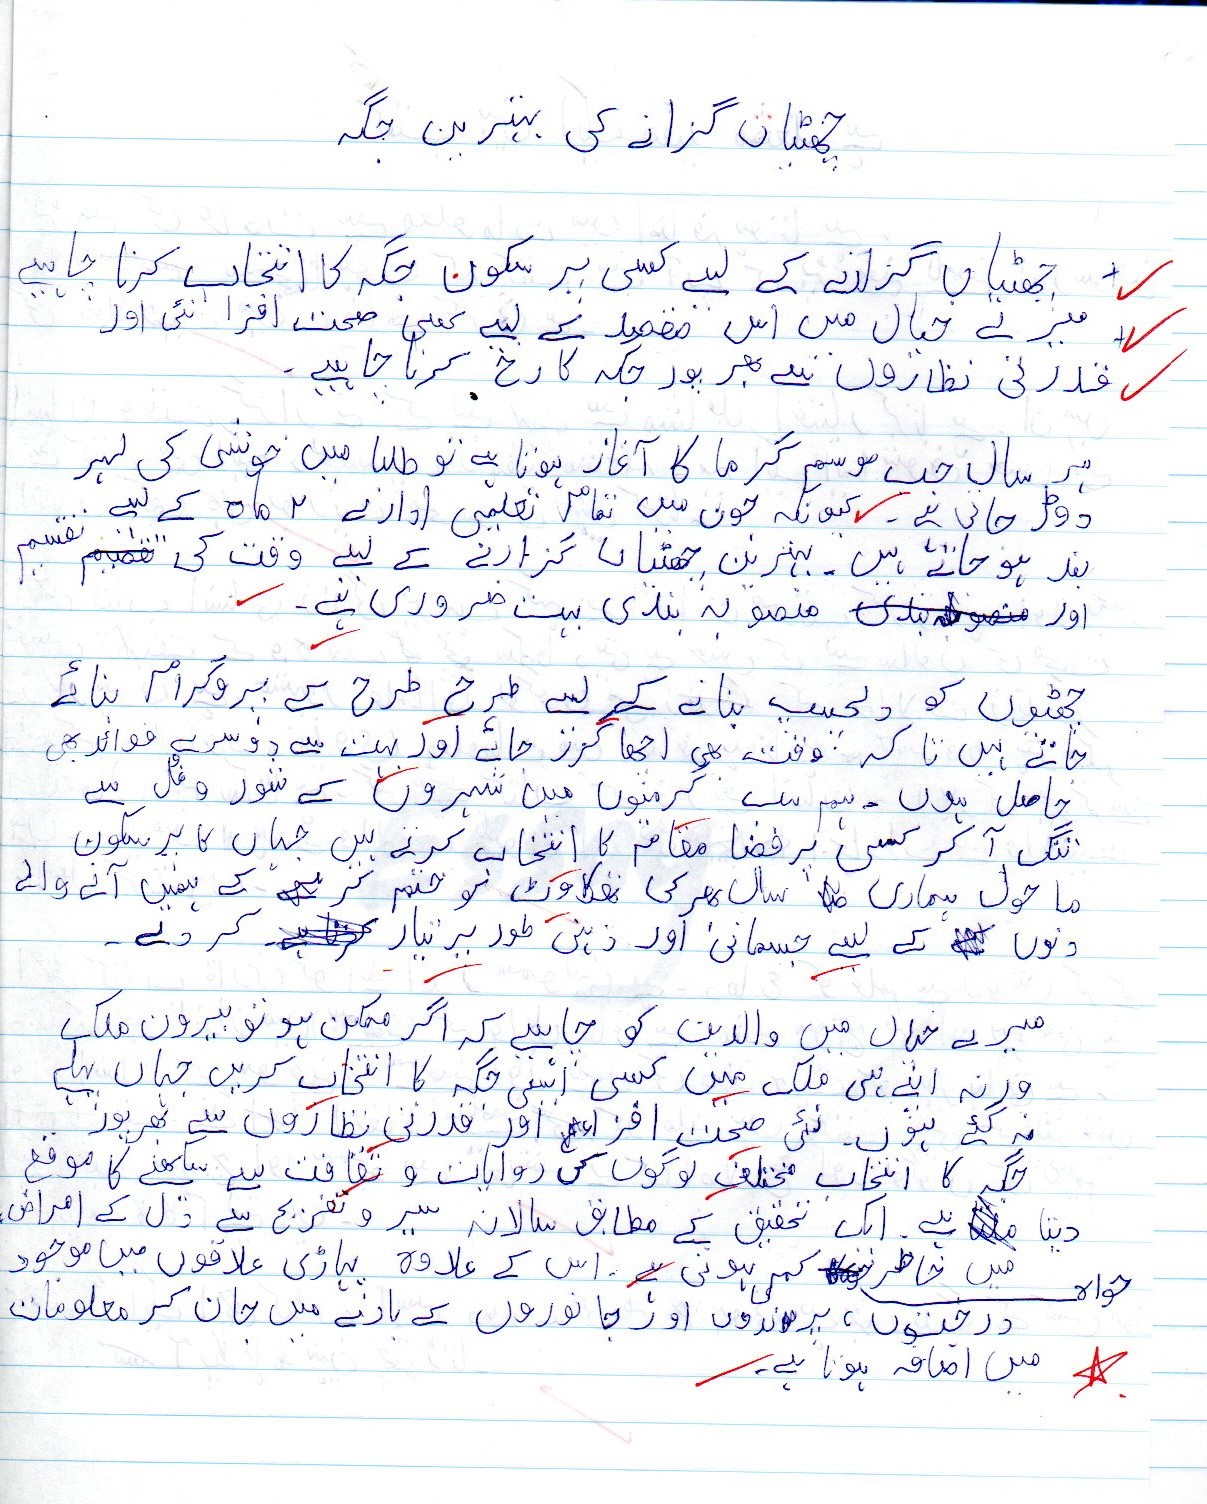 چھٹیاں گزانے کی بہترین جگہ
چھٹیاں گزارنے کے لیے کسی پر سکون جگہ کا انتخاب کرنا چاہیے
میرے خیال میں اس مقصد کے لیے کسی صحت افزا نئی اور
قدرتی نظاروں سے بھر پور جگہ کا رخ کرنا چاہیے۔
ہر سال جب موسم گرما کا آغاز ہوتا ہے تو طلبا میں خوشی کی لہر
دوڑ جاتی ہے۔ کیونکہ جون میں تمام تعلیمی ادارے ۲ ماہ کے لیے
بند ہو جاتے ہیں۔ بہترین چھٹیاں گزارنے کے لیے وقت کی تقسیم
اور منصوبہ بندی بہت ضروری ہے۔
چھٹیوں کو دلچسپ بنانے کے لیے طرح طرح کے پروگرام بنائے
جاتے ہیں تا کہ وقت بھی اچھا گزر جائے اور بہت سے دوسرے فوائد بھی
حاصل ہوں۔ ہم سب گرمیوں میں شہروں کے شور و غل سے
تنگ آ کر کسی پر فضا مقام کا انتخاب کرتے ہیں جہاں کا پر سکون
ماحول ہماری سال بھر کی تھکاوٹ کو ختم کر کے ہمیں آنے والے
دنوں کے لیے جسمانی اور ذہنی طور پر تیار کر دے۔
میرے خیال میں والدین کو چاہیے کہ اگر ممکن ہو تو بیرون ملک
ورنہ اپنے ہی ملک میں کسی ایسی جگہ کا انتخاب کریں جہاں پہلے
نہ گئے ہوں۔ نئی صحت افزا اور قدرتی نظاروں سے بھر پور
جگہ کا انتخاب مختلف لوگوں کی روایات و ثقافت سے سیکھنے کا موقع
دیتا ہے۔ ایک تحقیق کے مطابق سالانہ سیر و تفریح سے دل کے امراض
میں خاطر خواہ کمی ہوتی ہے۔ اس کے علاوہ پہاڑی علاقوں میں موجود
درختوں، پرندوں اور جانوروں کے بارے میں جان کر معلومات
میں اضافہ ہوتا ہے۔